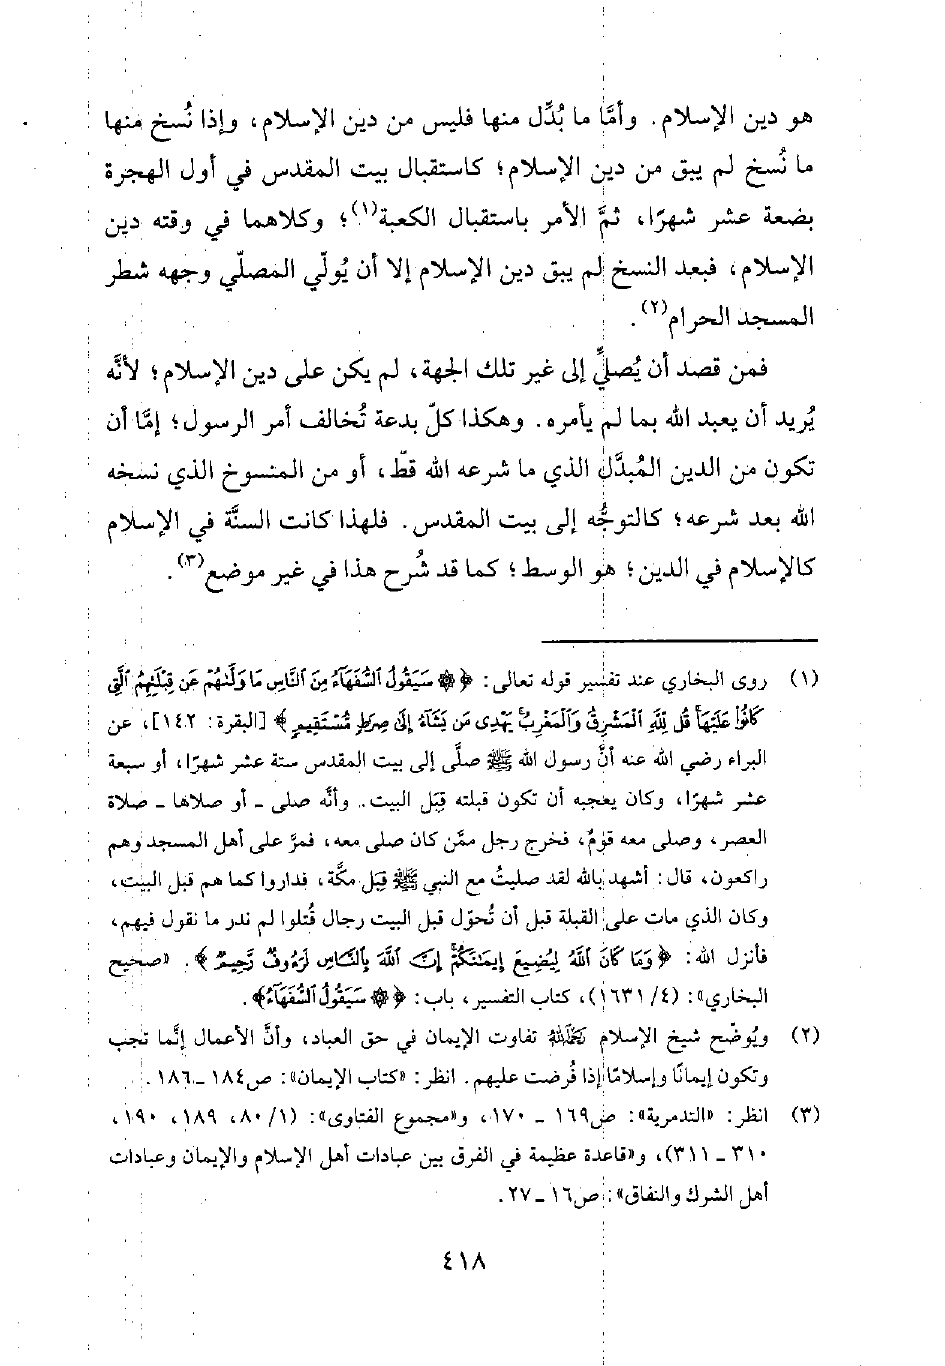 هو دين الإسلام. وأمَّا ما بُدِّل منها فليس من دين الإسلام، وإذا نُسخ منها
ما نُسخ لم يبق من دين الإسلام؛ كاستقبال بيت المقدس في أول الهجرة
بضعة عشر شهرًا، ثمَّ الأمر باستقبال الكعبة(١)؛ وكلاهما في وقته دين
الإسلام، فبعد النسخ لم يبق دين الإسلام إلا أن يُولّي المصلّي وجهه شطر
المسجد الحرام(٢).
فمن قصد أن يُصليِّ إلى غير تلك الجهة، لم يكن على دين الإسلام؛ لأنَّه
يُريد أن يعبد الله بما لم يأمره. وهكذا كلّ بدعة تُخالف أمر الرسول؛ إمَّا أن
تكون من الدين المُبدَّل الذي ما شرعه الله قطّ، أو من المنسوخ الذي نسخه
الله بعد شرعه؛ كالتوجُّه إلى بيت المقدس. فلهذا كانت السنَّة في الإسلام
كالإسلام في الدين؛ هو الوسط؛ كما قد شُرح هذا في غير موضع(٣).
(١) روى البخاري عند تفسير قوله تعالى: ﴿۞ سَيَقُولُ ٱلسُّفَهَآءُ مِنَ ٱلنَّاسِ مَا وَلَّىٰهُمْ عَن قِبْلَتِهِمُ ٱلَّتِي
كَانُوا۟ عَلَيْهَا ۚ قُل لِّلَّهِ ٱلْمَشْرِقُ وَٱلْمَغْرِبُ ۚ يَهْدِى مَن يَشَآءُ إِلَىٰ صِرَٰطٍ مُّسْتَقِيمٍ﴾ [البقرة: ١٤٢]، عن
البراء رضي الله عنه أنَّ رسول الله ﷺ صلَّى إلى بيت المقدس ستة عشر شهرًا، أو سبعة
عشر شهرًا، وكان يعجبه أن تكون قبلته قِبَل البيت. وأنَّه صلى ـ أو صلاها ـ صلاة
العصر، وصلى معه قومٌ، فخرج رجل ممَّن كان صلى معه، فمرَّ على أهل المسجد وهم
راكعون، قال: أشهد بالله لقد صليتُ مع النبي ﷺ قِبَل مكَّة، فداروا كما هم قبل البيت،
وكان الذي مات على القبلة قبل أن تُحوّل قبل البيت رجال قُتلوا لم ندر ما نقول فيهم،
فأنزل الله: ﴿وَمَا كَانَ ٱللَّهُ لِيُضِيعَ إِيمَٰنَكُمْ ۚ إِنَّ ٱللَّهَ بِٱلنَّاسِ لَرَءُوفٌ رَّحِيمٌ﴾. «صحيح
البخاري»: (٤/ ١٦٣١)، كتاب التفسير، باب: ﴿۞ سَيَقُولُ ٱلسُّفَهَآءُ﴾.
(٢) ويُوضّح شيخ الإسلام رحمه الله تفاوت الإيمان في حق العباد، وأنَّ الأعمال إنَّما تجب
وتكون إيمانًا وإسلامًا إذا فُرضت عليهم. انظر: «كتاب الإيمان»: ص١٨٤ ـ ١٨٦.
(٣) انظر: «التدمرية»: ص١٦٩ ـ ١٧٠، و«مجموع الفتاوى»: (١/ ٨٠، ١٨٩، ١٩٠،
٣١٠ ـ ٣١١)، و«قاعدة عظيمة في الفرق بين عبادات أهل الإسلام والإيمان وعبادات
أهل الشرك والنفاق»: ص١٦ ـ ٢٧.
٤١٨